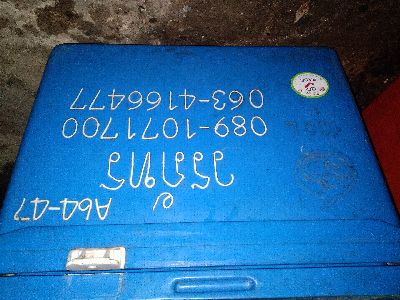 A64-47
วรภัทร
089-1071700
063-4166477